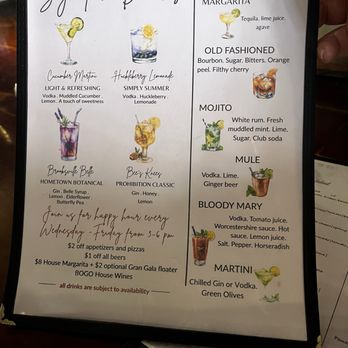 Cucumber Martini
LIGHT & REFRESHING
Vodka . Muddled Cucumber .
Lemon . A touch of sweetness
Huckleberry Lemonade
SIMPLY SUMMER
Vodka . Huckleberry .
Lemonade
Brooksville Belle
HOMETOWN BOTANICAL
Gin . Belle Syrup .
Lemon . Elderflower .
Butterfly Pea
Bee's Knees
PROHIBITION CLASSIC
Gin . Honey .
Lemon
Join us for happy hour every
Wednesday - Friday from 3-6 pm
$2 off appetizers and pizzas
$1 off all beers
$8 House Margarita + $2 optional Gran Gala floater
BOGO House Wines
all drinks are subject to availability
MARGARITA
Tequila. lime juice.
agave
OLD FASHIONED
Bourbon. Sugar. Bitters. Orange
peel. Filthy cherry
MOJITO
White rum. Fresh
muddled mint. Lime.
Sugar. Club soda
MULE
Vodka. Lime.
Ginger beer
BLOODY MARY
Vodka. Tomato juice.
Worcestershire sauce. Hot
sauce. Lemon juice.
Salt. Pepper. Horseradish
MARTINI
Chilled Gin or Vodka.
Green Olives